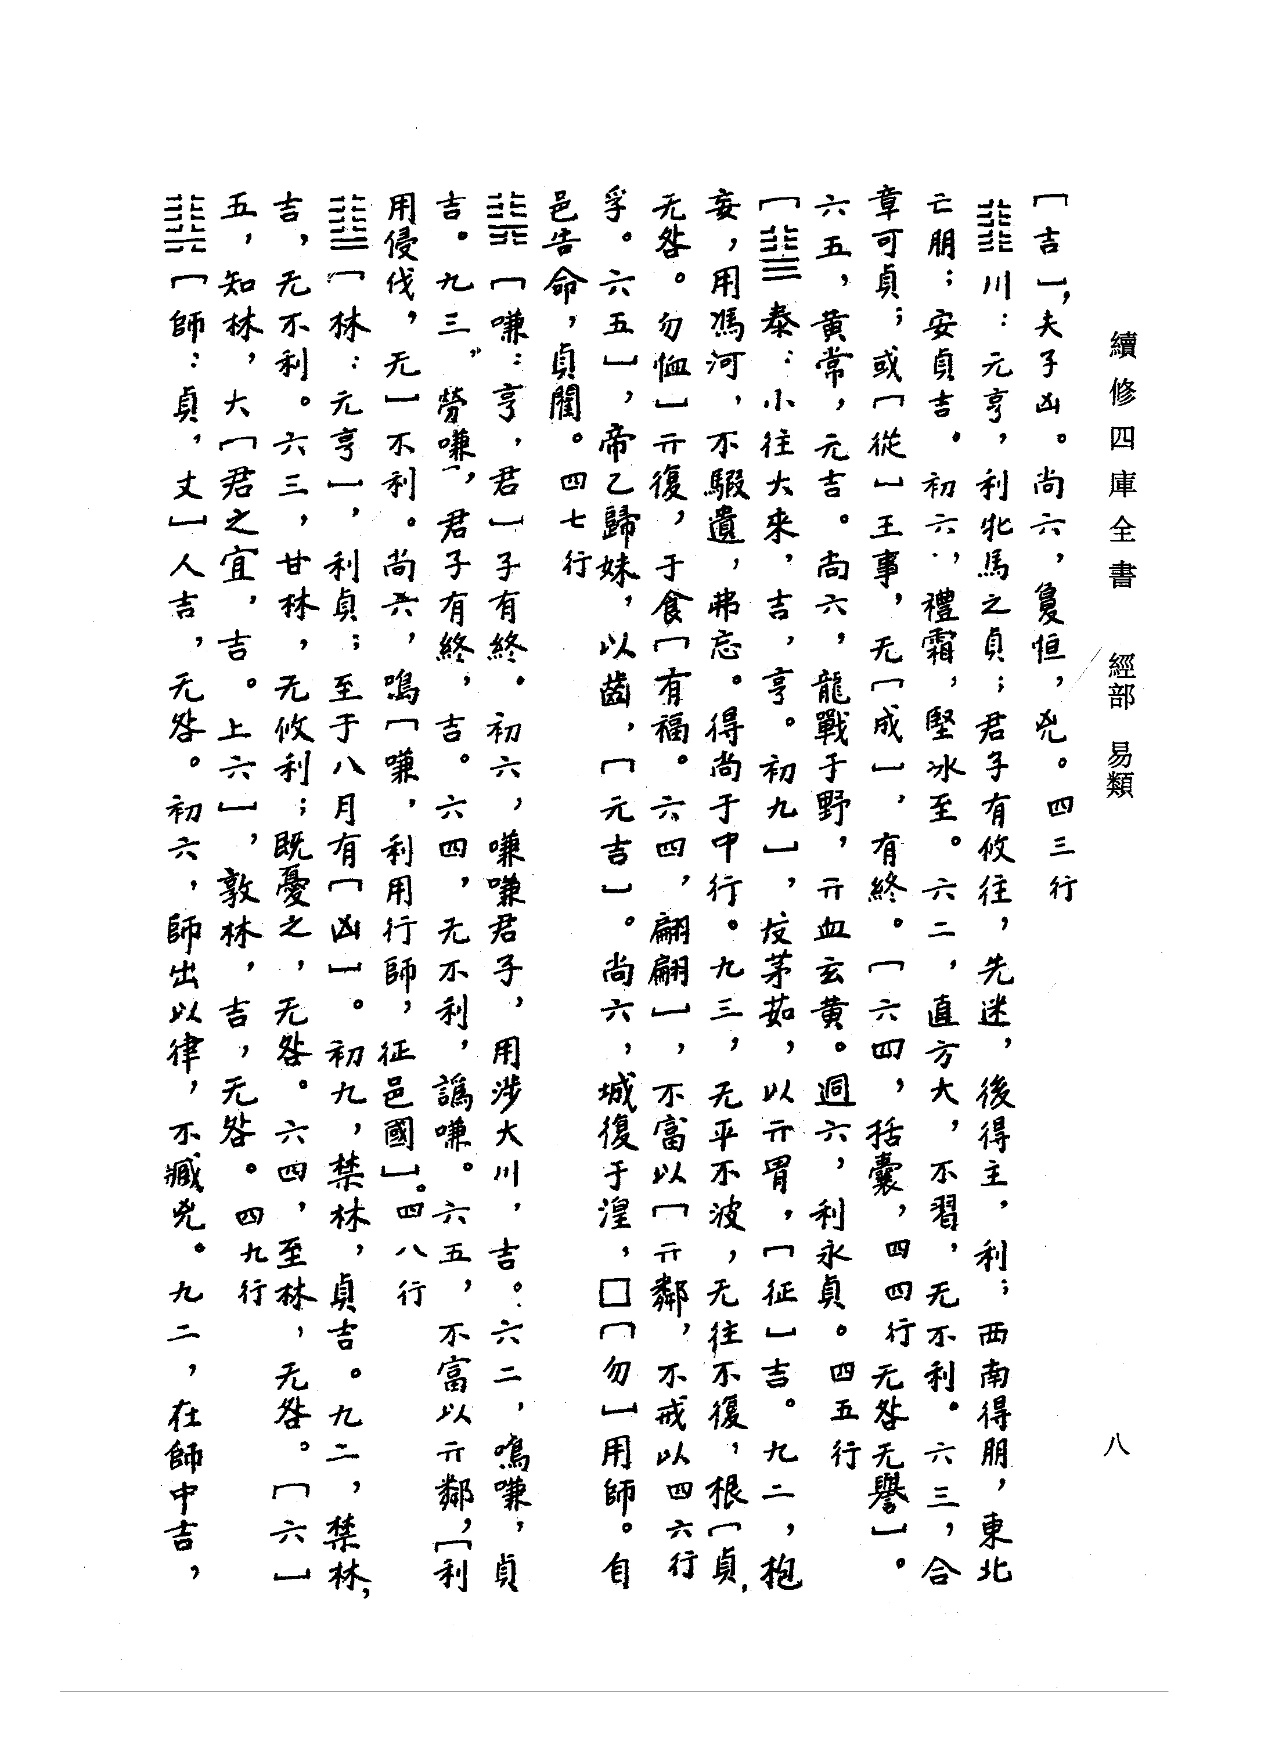 續修四庫全書 經部 易類
八
〔吉〕，夫子凶。尚六，敻恒，兇。四三行
䷁川：元亨，利牝馬之貞；君子有攸往，先迷，後得主，利；西南得朋，東北
亡朋；安貞吉。初六，禮霜，堅冰至。六二，直方大，不習，无不利。六三，合
章可貞；或〔從〕王事，无〔成〕，有終。〔六四，括囊，四四行无咎无譽〕。
六五，黃常，元吉。尚六，龍戰于野，亓血玄黃。迵六，利永貞。四五行
〔䷊泰：小往大來，吉，亨。初九〕，犮茅茹，以亓胃，〔征〕吉。九二，抱
妄，用馮河，不騢遺，弗忘。得尚于中行。九三，无平不波，无往不復，根〔貞，
无咎。勿恤〕亓復，于食〔有福。六四，翩翩〕，不富以〔亓鄰，不戒以四六行
孚。六五〕，帝乙歸妹，以齒，〔元吉〕。尚六，城復于湟，□〔勿〕用師。自
邑告命，貞閵。四七行
䷎〔嗛：亨，君〕子有終。初六，嗛嗛君子，用涉大川，吉。六二，鳴嗛，貞
吉。九三，勞嗛，君子有終，吉。六四，无不利，譌嗛。六五，不富以亓鄰，〔利
用侵伐，无〕不利。尚六，鳴〔嗛，利用行師，征邑國〕。四八行
䷒〔林：元亨〕，利貞；至于八月有〔凶〕。初九，禁林，貞吉。九二，禁林，
吉，无不利。六三，甘林，无攸利；既憂之，无咎。六四，至林，无咎。〔六〕
五，知林，大〔君之宜，吉。上六〕，敦林，吉，无咎。四九行
䷆〔師：貞，丈〕人吉，无咎。初六，師出以律，不臧兇。九二，在師中吉，